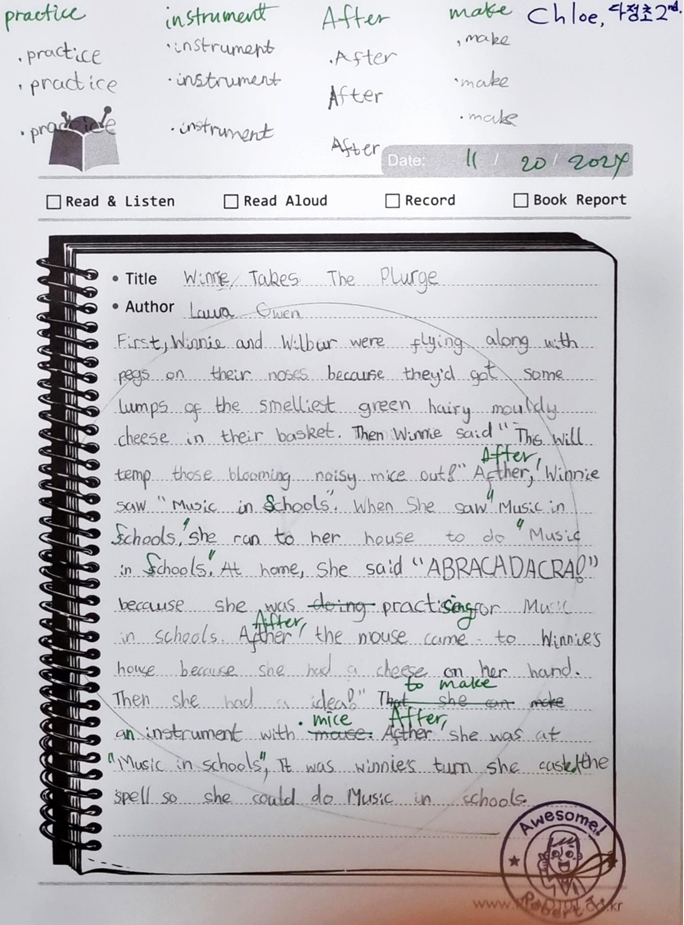 practice instrument After make Chloe, 다정초 2nd.
. practice . instrument . After . make
. practice . instrument After . make
. practice . instrument After . make
Date: 11 / 20 / 2024
Read & Listen Read Aloud Record Book Report
• Title Winnie Takes The Plurge
• Author Laura Owen
First, Winnie and Wilbur were flying along with
pegs on their noses because they'd got some
lumps of the smelliest green hairy mouldy
cheese in their basket. Then Winnie said "This will
After,
temp those blooming noisy mice out!" Afther, Winnie
saw "Music in Schools". When She saw "Music in
Schools," she ran to her house to do "Music
in Schools". At home, She said "ABRACADACRA!"
because she was doing practising for Music
After,
in schools. Afther, the mouse came to Winnie's
house because she had a cheese on her hand.
to make
Then she had a idea!" That she can make
mice After,
an instrument with mouse. Afther she was at
"Music in schools", It was winnie's turn she casted the
spell so she could do Music in schools.
Awesome!